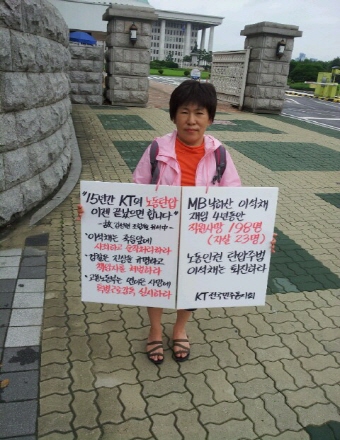 "15년간 KT의 노동탄압
이젠 끝났으면 합니다"
• 이석채는 죽음앞에
사죄하고 살피하라
• 검찰은 진실을 규명하고
책임자를 처벌하라
• 고용노동부는 연이은 사망에
특별근로감독 실시하라
MB낙하산 이석채
재임 4년동안
직원사망 198명
(자살 23명)
노동인권 탄압주범
이석채는 퇴진하라
KT